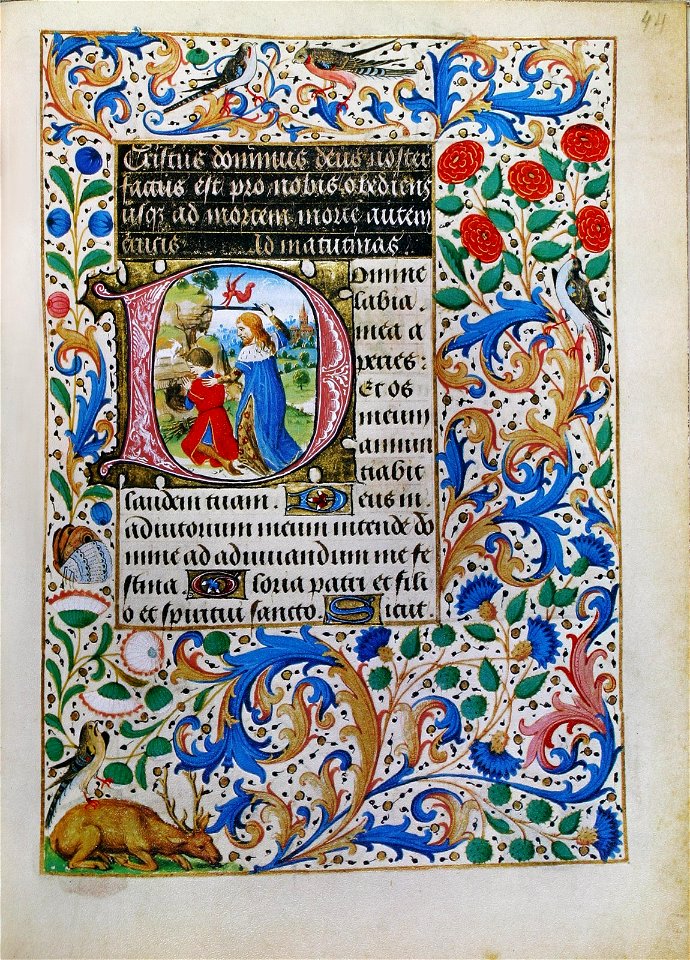 44
Cristus dominus deus noster
factus est pro nobis obediens
usqȝ ad mortem morte autem
crucis Ad matutinas
Domine
labia
mea a
peries:
Et os
meum
annun
tiabit
laudem tuam. Deus in
adiutorium meum intende do
mine ad adiuuandum me fe
stina Gloria patri et fili
o et spiritui sancto. Sicut